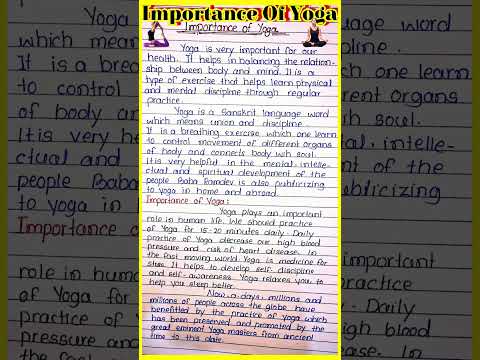 Importance Of Yoga
Importance of Yoga
Yoga is very important for our
health. It helps in balancing the relation-
ship between body and mind. It is a
type of exercise that helps learn physical
and mental discipline through regular
practice.
Yoga is a Sanskrit language word
which means union and discipline.
It is a breathing exercise which one learn
to control movement of different organs
of body and connects body wih soul.
It is very helpful in the mental, intelle-
ctual and spiritual development of the
people Baba Ramdev is also publicizing
to yoga in home and abroad.
Importance of Yoga:
Yoga plays an important
role in human life. We should practice
of Yoga for 15-20 minutes daily. Daily
practice of Yoga decrease our high blood
pressure and risk of heart disease. In
the fast moving world. Yoga is medicine for
stree. It helps to develop self-discipline
and self-awareness. Yoga relaxes you to
help you sleep better.
Now-a-days, millions and
millions of people across the globe have
benefitted by the practice of Yoga which
has been preserved and promoted by the
great eminent Yoga masters from ancient
time to this date.